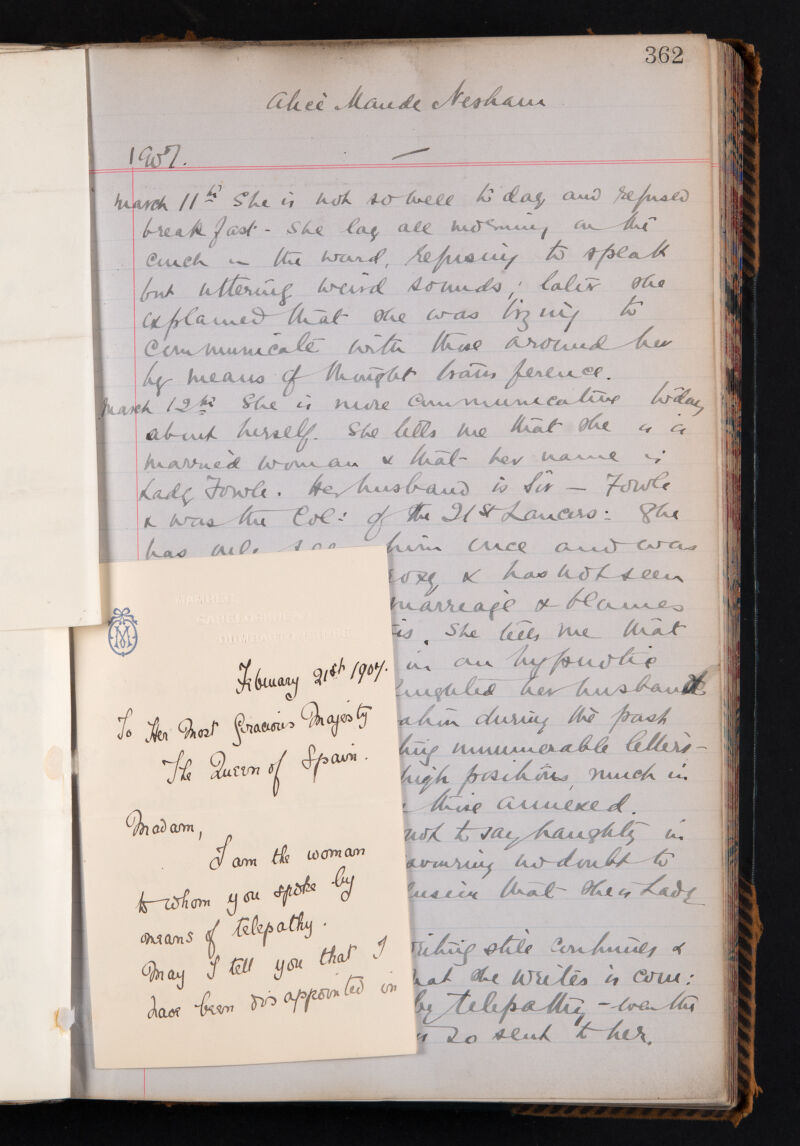 362
Alice Maude Nesham
1907.
March 11th She is not so well to day and refused
breakfast - She lay all morning on the
couch in the ward, refusing to speak
but uttering weird sounds; later she
explained that she was trying to
communicate with those around her
by means of thought transference.
March 12th She is more communicative today
about herself. She tells me that she is a
married woman & that her name is
Lady Fowle. Her husband is Sir — Fowle
& was the Col: of the 21st Lancers: She
has only him once and was
& has not seen
marriage & blames
She tells me that
in an hypnotic
her husband
during the past
innumerable letters -
high positions, much in
those annexed.
not to say haughty in
no doubt to
that she is Lady
writing still continues &
that she writes is com:
by telepathy - even the
so sent to her.
M
February 21st 1907.
To Her Most Gracious Majesty
The Queen of Spain.
Madam,
I am the woman
to whom you spoke by
means of telepathy.
May I tell you that I
have been disappointed in